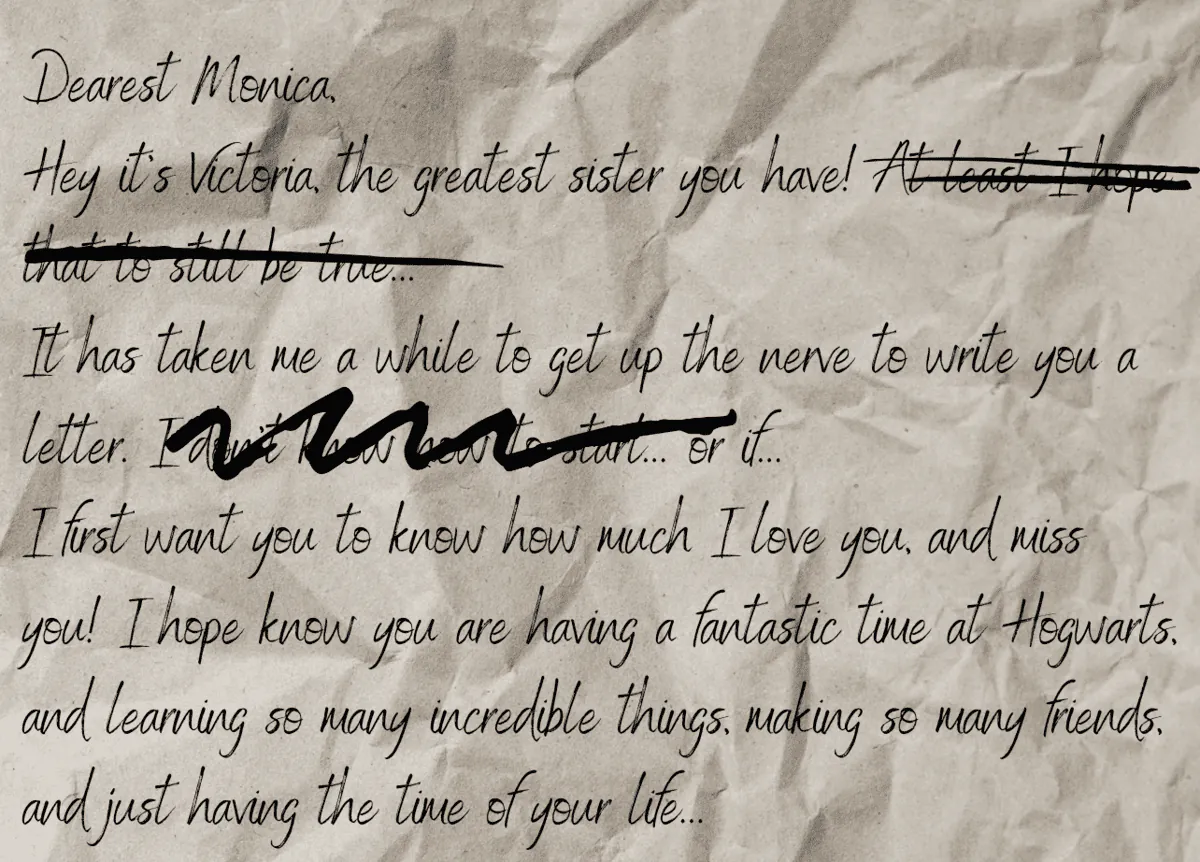 Dearest Monica,
Hey it's Victoria, the greatest sister you have! At least I hope
that to still be true...
It has taken me a while to get up the nerve to write you a
letter. I don't know how to start... or if...
I first want you to know how much I love you, and miss
you! I hope know you are having a fantastic time at Hogwarts,
and learning so many incredible things, making so many friends,
and just having the time of your life...